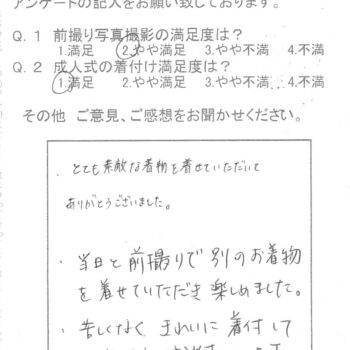 アンケートの記入をお願い致しております。
Q.1 前撮り写真撮影の満足度は?
1.満足 2.やや満足 3.やや不満 4.不満
Q.2 成人式の着付け満足度は?
1.満足 2.やや満足 3.やや不満 4.不満
その他 ご意見、ご感想をお聞かせください。
・とても素敵な着物を着せていただいて
ありがとうございました。
・当日と前撮りで別のお着物
を着せていただき楽しめました。
・苦しくなく きれいに着付して